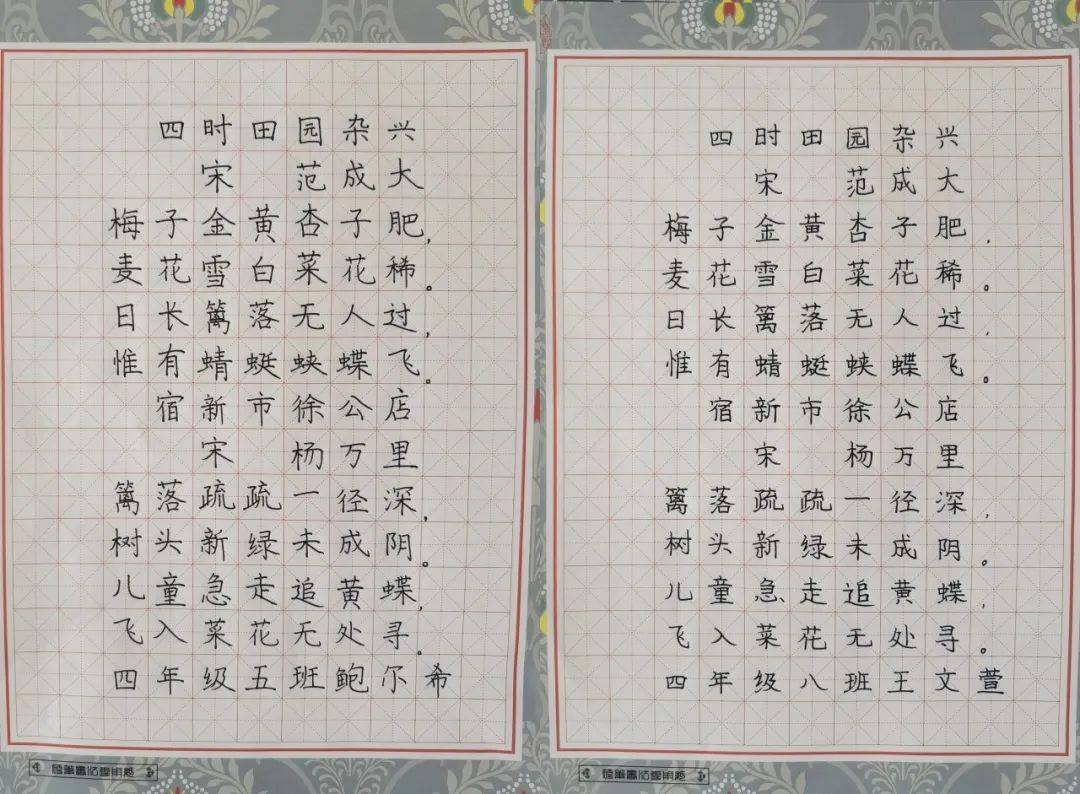 四时田园杂兴
宋 范成大
梅子金黄杏子肥，
麦花雪白菜花稀。
日长篱落无人过，
惟有蜻蜓蛱蝶飞。
宿新市徐公店
宋 杨万里
篱落疏疏一径深，
树头新绿未成阴。
儿童急走追黄蝶，
飞入菜花无处寻。
四年级五班鲍尔希
四时田园杂兴
宋 范成大
梅子金黄杏子肥，
麦花雪白菜花稀。
日长篱落无人过，
惟有蜻蜓蛱蝶飞。
宿新市徐公店
宋 杨万里
篱落疏疏一径深，
树头新绿未成阴。
儿童急走追黄蝶，
飞入菜花无处寻。
四年级八班王文萱